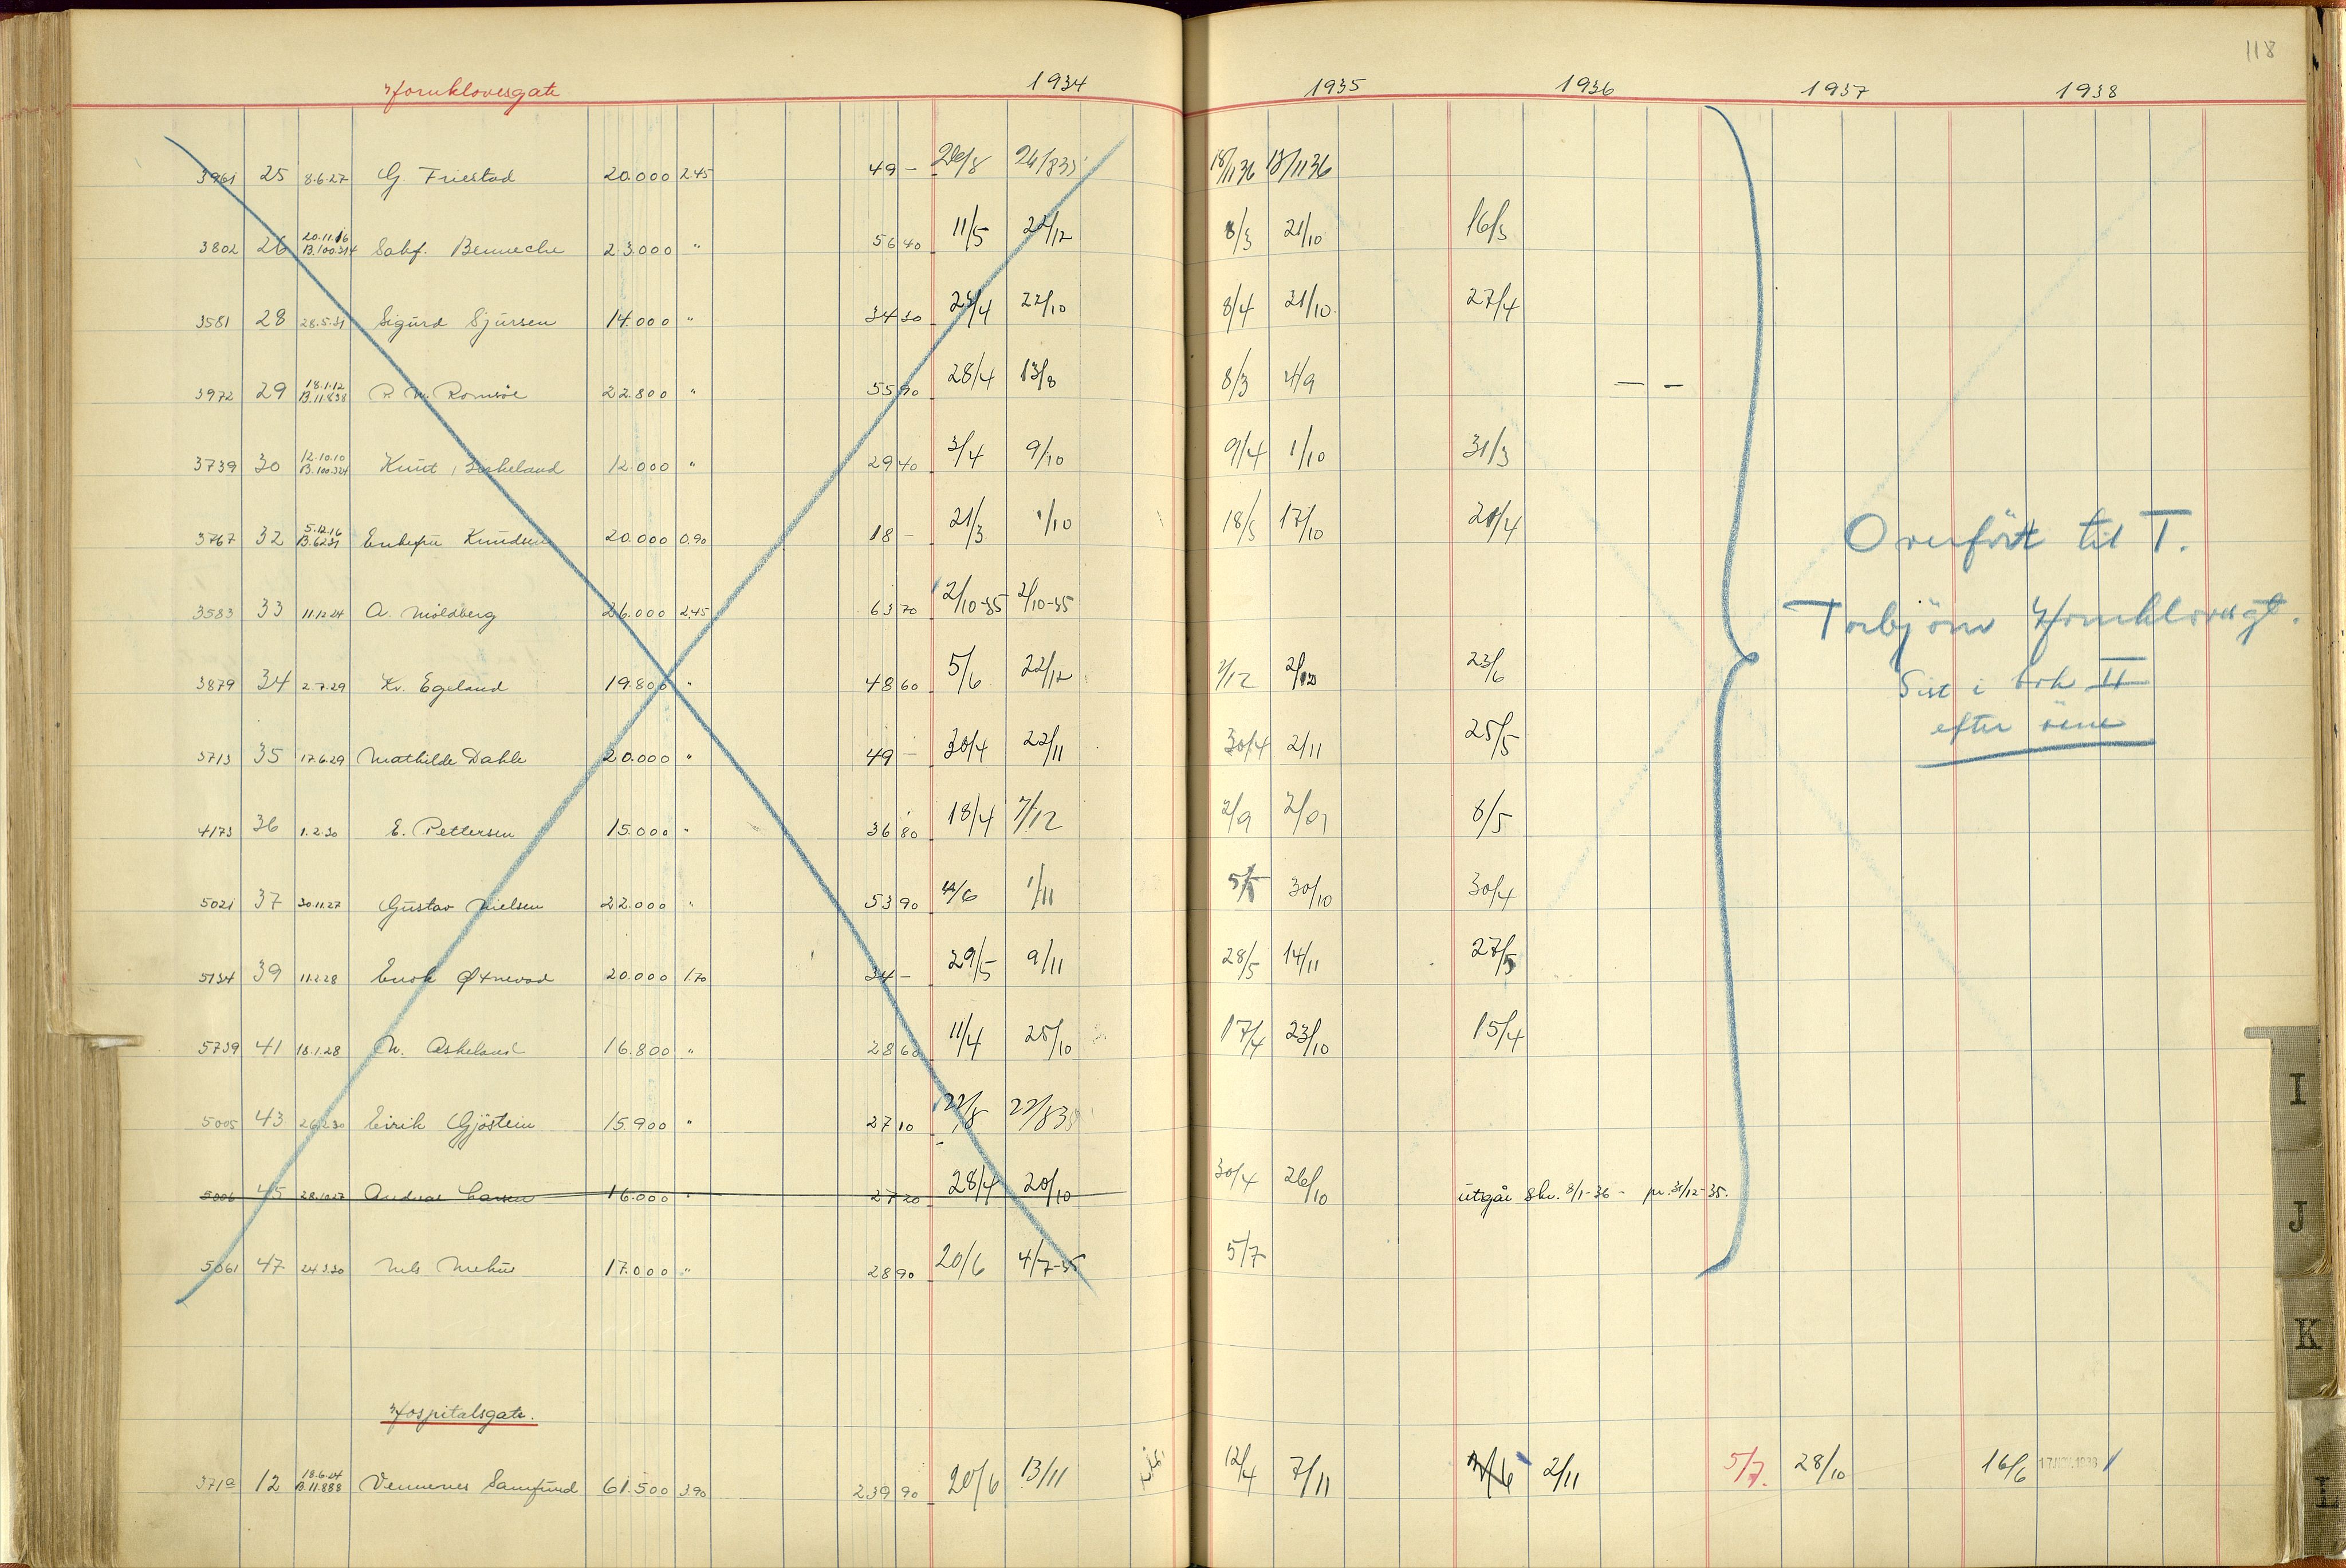 118
Hornklovesgate 1934 1935 1936 1937 1938
3961 25 8.6.27 G. Friestad 20.000 2.45 49 - 26/8 26/8 35 18/11 36 18/11 36
3802 26 20.11.16 B.100.314 Sakf. Benneche 23.000 " 56 40 11/5 22/12 8/3 21/10 16/3
3581 28 28.5.31 Sigurd Sjursen 14.000 " 34 30 23/4 22/10 8/4 21/10 27/4
3972 29 18.1.12 B.11.838 P. N. Romsöe 22.800 " 55 90 28/4 13/8 8/3 4/9 — –
3739 30 12.10.10 B.100.324 Knut Birkeland 12.000 " 29 40 3/4 9/10 9/4 1/10 31/3
3767 32 5.12.16 B.6231 Enkefru Knudsen 20.000 0.90 18 - 21/3 1/10 18/3 17/10 21/4
3583 33 11.12.24 A. Moldberg 26.000 2.45 63 70 2/10-35 2/10-35
3879 34 2.7.29 Kr. Egeland 19.800 " 48 60 5/6 22/12 2/12 2/12 23/6
3713 35 17.6.29 Mathilde Dahle 20.000 " 49 - 30/4 22/11 30/4 2/11 25/5
4173 36 1.2.30 E. Pettersen 15.000 " 36 80 18/4 7/12 2/9 2/9 8/5
5021 37 30.11.27 Gustav Nielsen 22.000 " 53 90 4/6 1/11 5/5 30/10 30/4
5134 39 11.2.28 Enok Øxnevad 20.000 1.70 34 - 29/5 9/11 28/5 14/11 27/5
5739 41 18.1.28 N. Askeland 16.800 " 28 60 11/4 25/10 17/4 23/10 15/4
5005 43 26.2.30 Eirik Gjöstein 15.900 " 27 10 22/8 22/8 35
5006 45 28.10.27 Andreas Larsen 16.000 " 27 20 28/4 20/10 30/4 26/10 utgår skr. 8/1-36 - pr. 31/12-35.
5061 47 24.3.30 Nils Mehus 17.000 " 28 90 20/6 4/7-35 5/7
Overfört til T.
Torbjörn Hornklovesgt.
Sist i bok II
efter
Hospitalsgate.
371a 12 18.6.24 B.11.888 Vennenes Samfund 61.500 3.90 239 90 20/6 13/11 12/4 7/11 2/11 5/7. 28/10 16/6 17 NOV. 1938
I
J
K
L